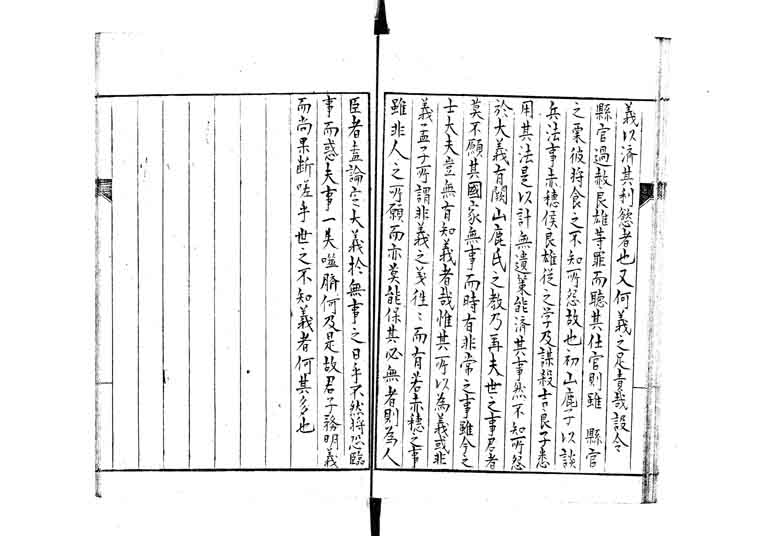 義以済其利慾者也又何義之足責哉設令
縣官過赦良雄等罪而聽其仕官則雖　縣官
之粟彼将食之不知所怨故也初山鹿子以談
兵法事赤穂侯良雄従之学及謀殺吉良子悉
用其法是以計無遺策能済其事然不知所怨
於大義有闕山鹿氏之教乃再夫世之事君者
莫不願其國家無事而時有非常之事雖今之
士大夫豈無有知義者哉惟其所以為義或非
義孟子所謂非義之義徃々而有若赤穂之事
雖非人之所願而亦莫能保其必無者則為人
臣者盍論定大義於無事之日乎不然将恐臨
事而惑夫事一失噬臍何及是故君子務明義
而尚果断嗟乎世之不知義者何其多也